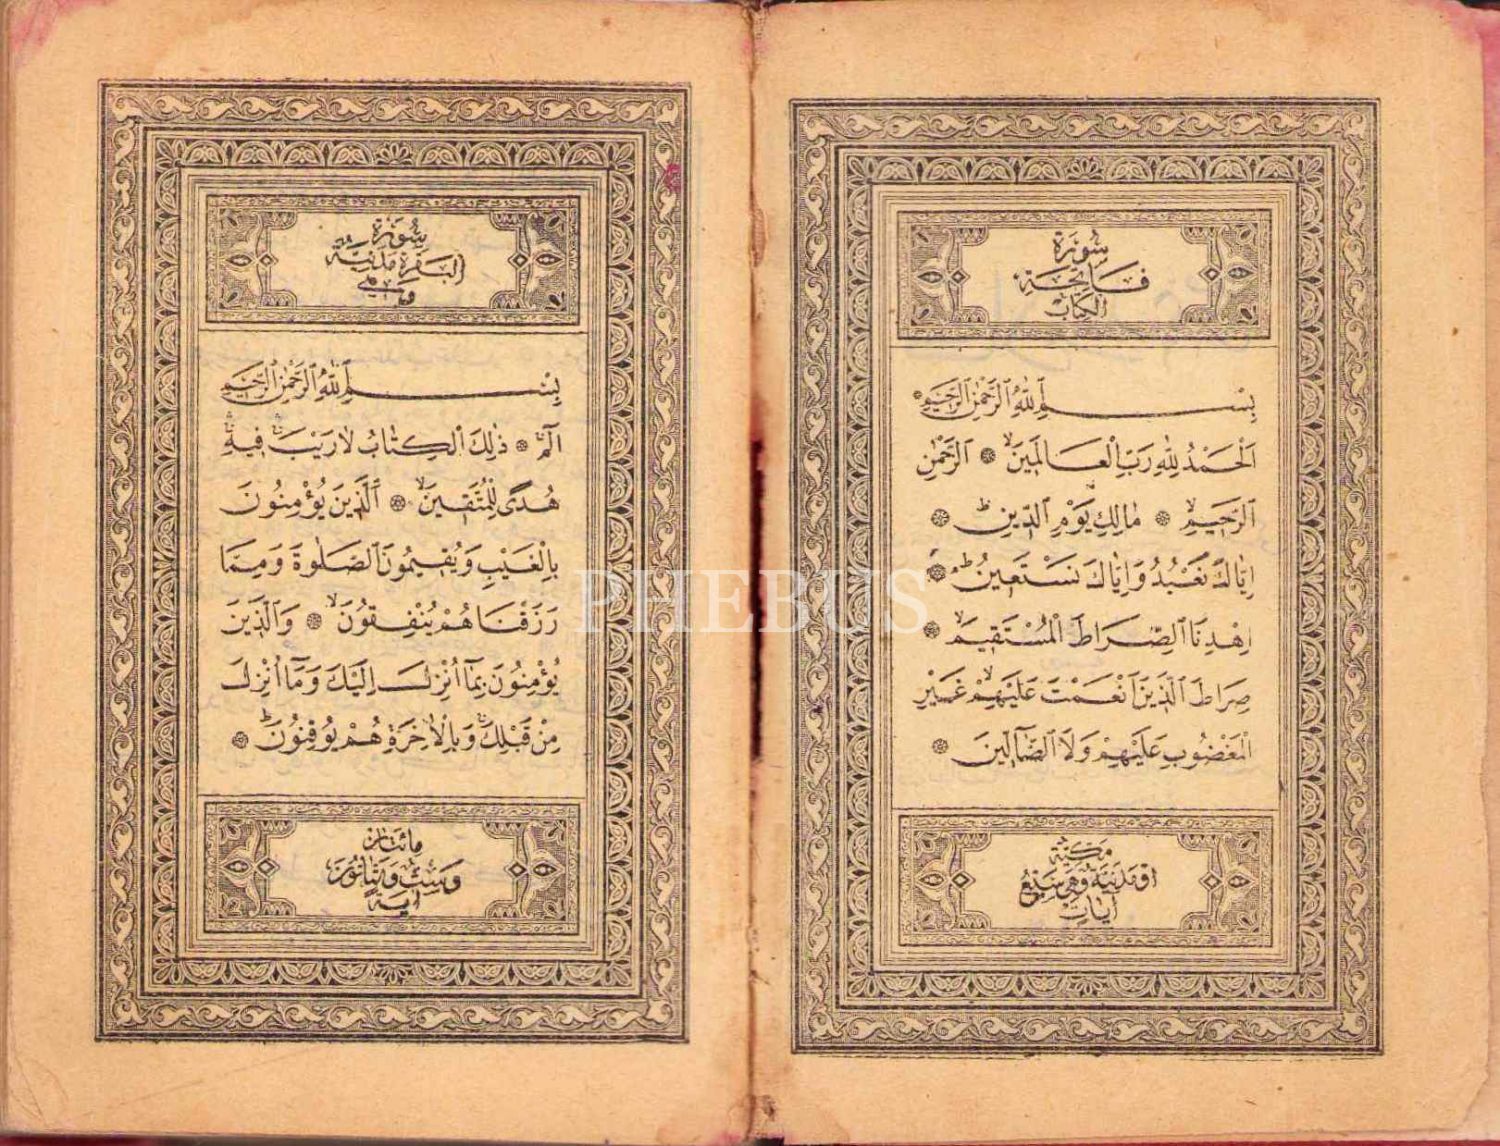 سُورَةُ
فَاتِحَةِ
الكِتَابِ
بِسْمِ ٱللّٰهِ ٱلرَّحْمٰنِ ٱلرَّحِيمِ
اَلْحَمْدُ لِلّٰهِ رَبِّ الْعَالَمِينَۙ ۞ اَلرَّحْمٰنِ
ٱلرَّحِيمِۙ ۞ مَالِكِ يَوْمِ ٱلدِّينِۜ ۞
اِيَّاكَ نَعْبُدُ وَاِيَّاكَ نَسْتَعِينُۜ ۞
اِهْدِنَا ٱلصِّرَاطَ الْمُسْتَقِيمَۙ ۞
صِرَاطَ ٱلَّذِينَ اَنْعَمْتَ عَلَيْهِمْۙ غَيْرِ
الْمَغْضُوبِ عَلَيْهِمْ وَلَا ٱلضَّٓالِّينَ ۞
مكية
او مدنية وهى سبع
آيات
سُورَةُ
البقرة مدنية
وهى
بِسْمِ ٱللّٰهِ ٱلرَّحْمٰنِ ٱلرَّحِيمِ
الٓمٓۚ ۞ ذٰلِكَ الْكِتَابُ لَا رَيْبَۚ فِيهِۚ
هُدًى لِلْمُتَّقِينَۙ ۞ اَلَّذِينَ يُؤْمِنُونَ
بِالْغَيْبِ وَيُقِيمُونَ ٱلصَّلٰوةَ وَمِمَّا
رَزَقْنَاهُمْ يُنْفِقُونَۙ ۞ وَٱلَّذِينَ
يُؤْمِنُونَ بِمَٓا اُنْزِلَ اِلَيْكَ وَمَٓا اُنْزِلَ
مِنْ قَبْلِكَۚ وَبِالْاٰخِرَةِ هُمْ يُوقِنُونَۜ ۞
مائتان
وست وثمانون
آية
PHEBUS